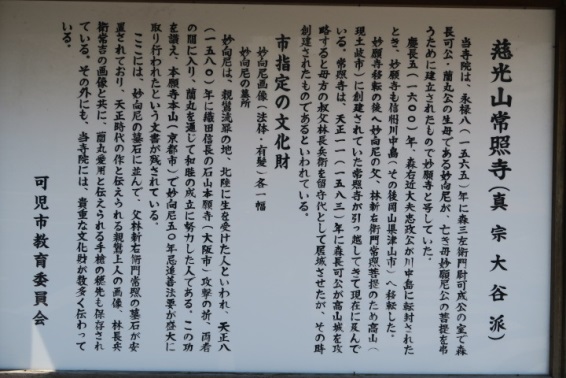 慈光山常照寺(真宗大谷派)
当寺院は、永禄八(一五六五)年に森三左衛門尉可成公の室で森
長可公・蘭丸公の生母である妙向尼が、亡き母妙願尼公の菩提を弔
うために建立されたもので妙願寺と号していた。
慶長五(一六〇〇)年、森右近大夫忠政公が川中島に転封された
とき、妙願寺も信州川中島(その後岡山県津山市)へ移転した。
妙願寺移転の後へ妙向尼の父、林新右衛門常照菩提のため高山(
現土岐市)に創建されていた常照寺が引っ越してきて現在に及んで
いる。常照寺は、天正一一(一五八三)年に森長可公が高山城を攻
略すると母方の叔父林長兵衛を留守代として居城させたが、その時
創建されたものであるといわれている。
市指定の文化財
妙向尼画像(法体・有髪)各一幅
妙向尼の墓所
妙向尼は、親鸞流罪の地、北陸に生を受けた人といわれ、天正八
(一五八〇)年に織田信長の石山本願寺(大阪市)攻撃の折、両者
の間に入り、蘭丸を通じて和睦の成立に努力した人である。この功
を讃え、本願寺本山(京都市)で妙向尼五〇年忌追善法要が盛大に
取り行われたという文書が残されている。
ここには、妙向尼の墓石に並んで、父林新右衛門常照の墓石が安
置されており、天正時代の作と伝えられる親鸞上人の画像、林長兵
衛常吉の画像と共に、蘭丸愛用と伝えられる手槍の穂先も保存され
ている。その外にも、当寺院には、貴重な文化財が数多く伝わって
いる。
可児市教育委員会